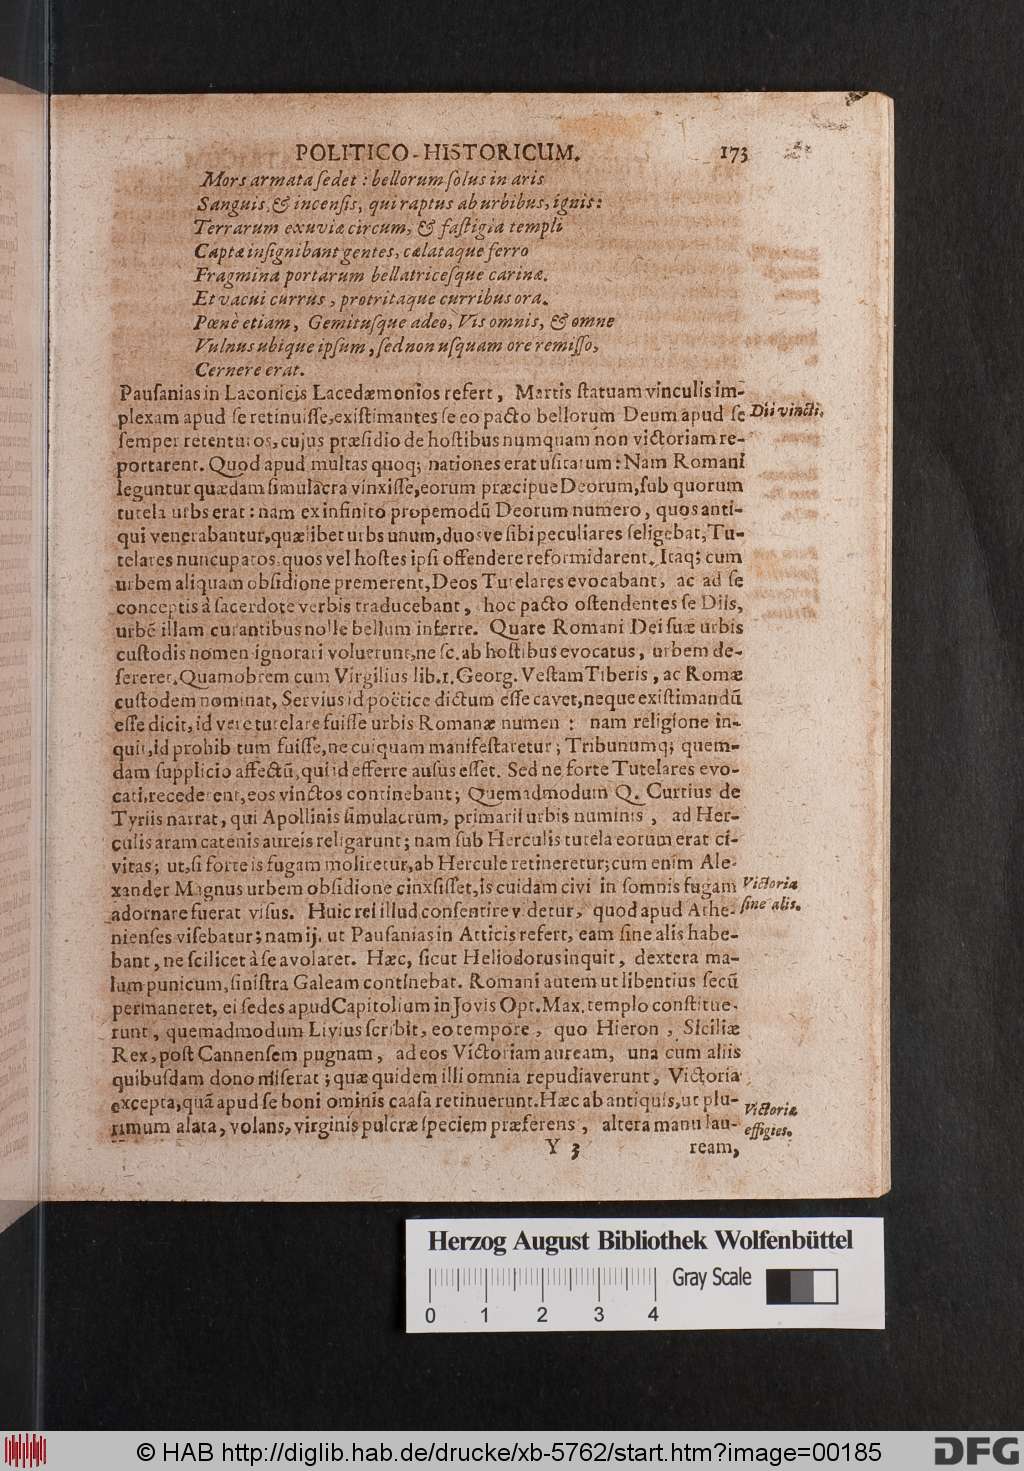 POLITICO-HISTORICUM. 173
Mors armata ſedet : bellorum ſolus in aris
Sanguis, & incenſis, qui raptus ab urbibus, ignis:
Terrarum exuviæ circum, & faſtigia templi
Captæ inſignibant gentes, cælataque ferro
Fragmina portarum bellatriceſque carinæ.
Et vacui currus, protritaque curribus ora.
Pœnè etiam, Gemituſque adeo, Vis omnis, & omne
Vulnus ubique ipſum, ſed non uſquam ore remiſſo,
Cernere erat.
Pauſanias in Laconicis Lacedæmonios refert, Martis ſtatuam vinculis im-
plexam apud ſe retinuiſſe, exiſtimantes ſe eo pacto bellorum Deum apud ſe
Dii vincti.
ſemper retenturos, cujus præſidio de hoſtibus numquam non victoriam re-
portarent. Quod apud multas quoq; nationes erat uſitatum: Nam Romani
leguntur quædam ſimulacra vinxiſſe, eorum præcipue Deorum, ſub quorum
tutela urbs erat: nam ex infinito propemodū Deorum numero, quos anti-
qui venerabantur, quælibet urbs unum, duosve ſibi peculiares ſeligebat, Tu-
telares nuncupatos, quos vel hoſtes ipſi offendere reformidarent. Itaq; cum
urbem aliquam obſidione premerent, Deos Tutelares evocabant, ac ad ſe
conceptis à ſacerdote verbis traducebant, hoc pacto oſtendentes ſe Diis,
urbē illam curantibus nolle bellum inferre. Quare Romani Dei ſuæ urbis
cuſtodis nomen ignorari voluerunt, ne ſc. ab hoſtibus evocatus, urbem de-
ſereret. Quamobrem cum Virgilius lib. 1. Georg. Veſtam Tiberis, ac Romæ
cuſtodem nominat, Servius id poëtice dictum eſſe cavet, neque exiſtimandū
eſſe dicit, id vere tutelare fuiſſe urbis Romanæ numen : nam religione in-
quit, id prohibitum fuiſſe, ne cuiquam manifeſtaretur; Tribunumq; quem-
dam ſupplicio affectū, qui id efferre auſus eſſet. Sed ne forte Tutelares evo-
cati, recederent, eos vinctos continebant; Quemadmodum Q. Curtius de
Tyriis narrat, qui Apollinis ſimulacrum, primarii urbis numinis, ad Her-
culis aram catenis aureis religarunt; nam ſub Herculis tutela eorum erat ci-
vitas; ut, ſi forte is fugam moliretur, ab Hercule retineretur; cum enim Ale-
xander Magnus urbem obſidione cinxſiſſet, is cuidam civi in ſomnis fugam
Victoria
adornare fuerat viſus. Huic rei illud conſentire videtur, quod apud Athe-
ſine alis.
nienſes viſebatur; nam ij, ut Pauſanias in Atticis refert, eam ſine alis habe-
bant, ne ſcilicet à ſe avolaret. Hæc, ſicut Heliodorus inquit, dextera ma-
lum punicum, ſiniſtra Galeam continebat. Romani autem ut libentius ſecū
permaneret, ei ſedes apud Capitolium in Jovis Opt. Max. templo conſtitue-
runt, quemadmodum Livius ſcribit, eo tempore, quo Hieron, Siciliæ
Rex, poſt Cannenſem pugnam, ad eos Victoriam auream, una cum aliis
quibuſdam dono miſerat; quæ quidem illi omnia repudiaverunt, Victoria
excepta, quā apud ſe boni ominis caaſa retinuerunt. Hæc ab antiquis, ut plu-
Victoriæ
rimum alata, volans, virginis pulcræ ſpeciem præferens, altera manu lau-
effigies.
Y 3 ream,
Herzog August Bibliothek Wolfenbüttel
Gray Scale
0 1 2 3 4
© HAB http://diglib.hab.de/drucke/xb-5762/start.htm?image=00185
DFG